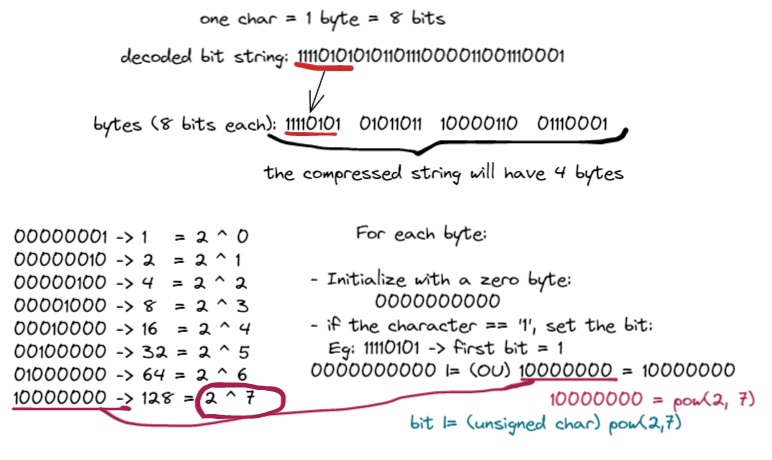 one char = 1 byte = 8 bits
decoded bit string: 11110101010110111000011001110001
bytes (8 bits each): 11110101 01011011 10000110 01110001
the compressed string will have 4 bytes
00000001 -> 1 = 2 ^ 0
00000010 -> 2 = 2 ^ 1
00000100 -> 4 = 2 ^ 2
00001000 -> 8 = 2 ^ 3
00010000 -> 16 = 2 ^ 4
00100000 -> 32 = 2 ^ 5
01000000 -> 64 = 2 ^ 6
10000000 -> 128 = 2 ^ 7
For each byte:
- Initialize with a zero byte:
0000000000
- if the character == '1', set the bit:
Eg: 11110101 -> first bit = 1
0000000000 |= (OU) 10000000 = 10000000
10000000 = pow(2, 7)
bit |= (unsigned char) pow(2,7)